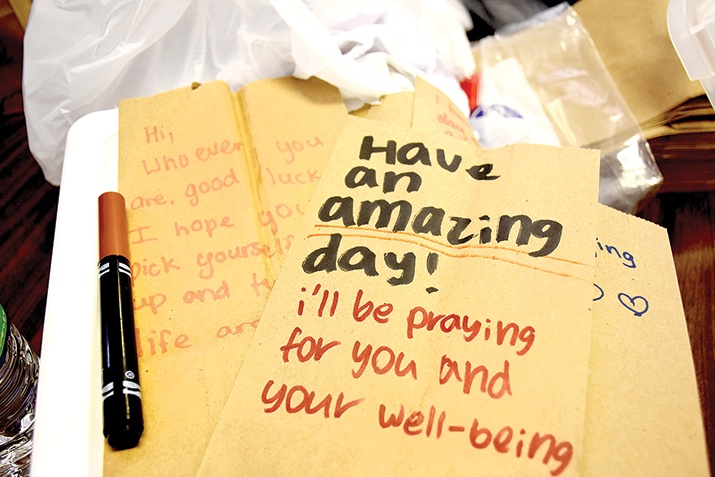 Hi,
Who ever you
are, good luck
I hope you
pick yourself
up and
life
Have
an
amazing
day!
i'll be praying
for you and
your well-being
ing